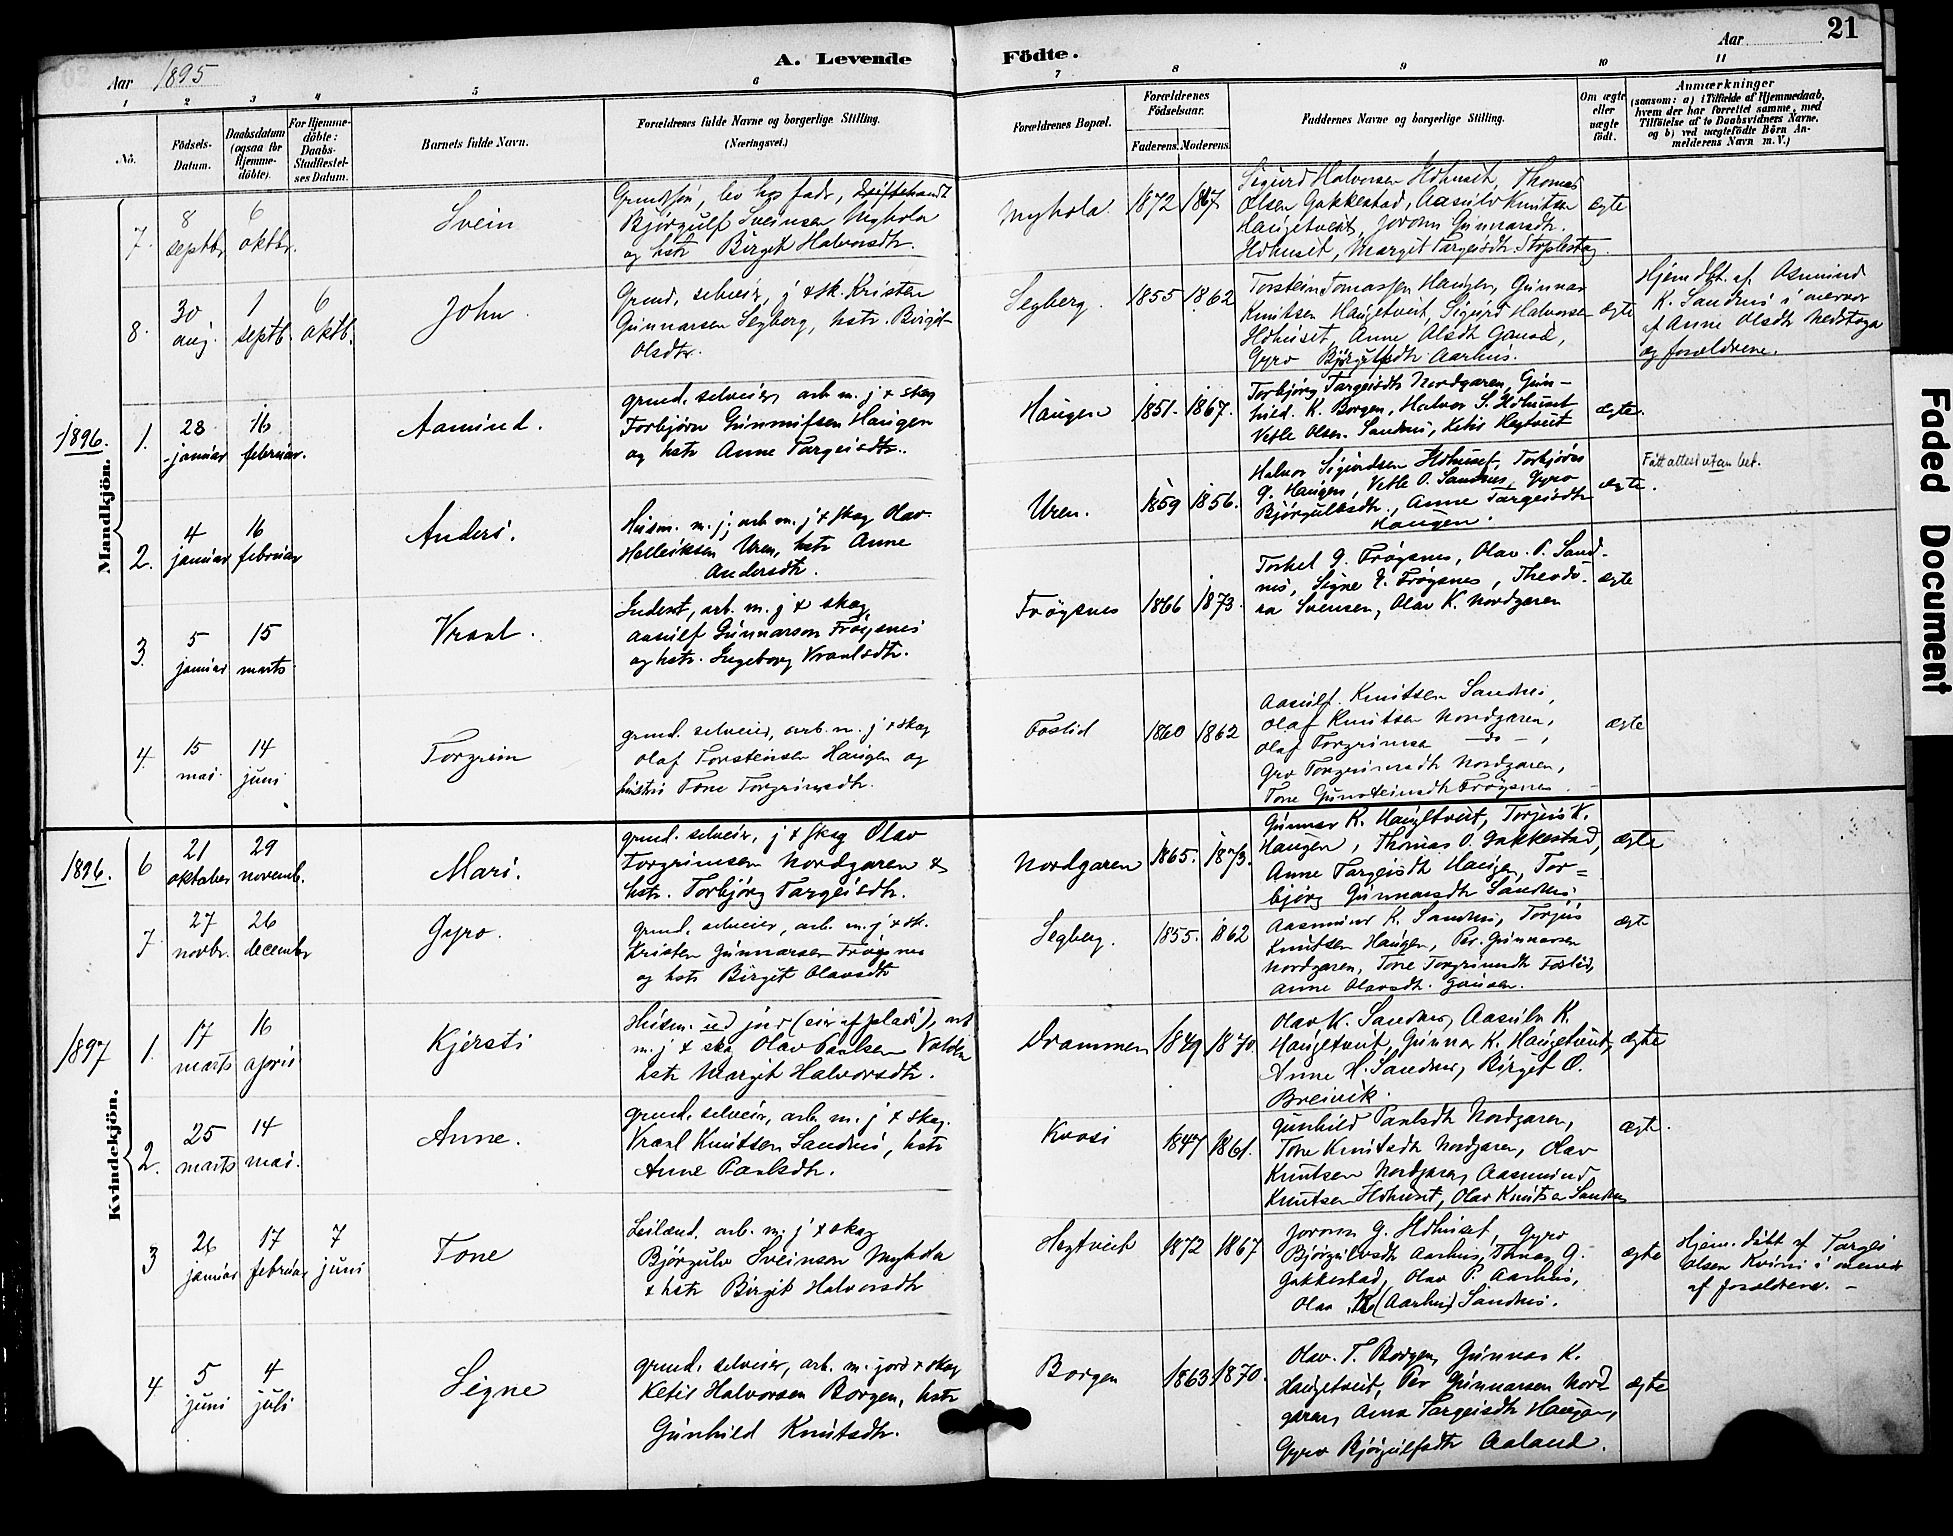 21
Aar 1895
A. Levende Födte.
Aar
1 2 3 4 5 6 7 8 9 10 11
No.
Födsels-Datum.
Daabsdatum (ogsaa for Hjemmedöbte).
For Hjemmedöbte: Daabs-Stadfæstelses Datum.
Barnets fulde Navn.
Forældrenes fulde Navne og borgerlige Stilling. (Næringsvei.)
Forældrenes Bopæl.
Forældrenes Födselsaar.
Faderens. Moderens.
Faddernes Navne og borgerlige Stilling.
Om ægte eller uægte födt.
Anmærkninger
(saasom: a) i Tilfælde af Hjemmedaab, hvem der har forrettet samme, med Tilföielse af to Daabsvidners Navne, og b) ved uægtefödte Börn Anmelderens Navn m. V.)
Mandkjön.
7. 8 septbr. 6 oktbr.
Svein
Bjørgulf Sveinsen Myhola
og hstr Birgit Halvorsdtr.
Myhola 1872 1867
Sigurd Halvorsen Hdhuset, Thomas
Olsen Gakkestad, Aasulv Knutsen
Haugetveit, Joronn Gunnarsdtr.
Hdhuset, Margit Targeisdtr.
ægte
8. 30 aug. 1 septb. 6 oktb.
John
Grund, selveier, j & sk. Kristen
Gunnarsen Segberg, hstr. Birgit
Olsdtr.
Segberg. 1855 1862
Torstein Tomassen Haugen, Gunnar
Knutsen Haugetveit, Sigurd Halvorsen
Hdhuset, Anne Olsdtr
Gyro Bjørgulfsdtr Aarhus.
ægte
Hjemdbt. af Osmund
K. Sandnes i nærvær
af Anne Olsdtr Nedstoga
og forældrene.
1896.
1. 28 januar 16 februar.
Aamund.
grund. selveier, arb m. j & skog
Torbjørn Gunnulfsen Haugen
og hstr Anne Targeisdtr.
Haugen 1851 1867.
Torbjørg Targeisdtr Nordgaren, Gun-
hild K. Borgen, Halvor S. Hdhuset
Vetle Olsen Sandnes, Ketil Hegtveit
ægte.
2. 4 januar 16 februar
Anders.
Husm. m. j; arb m. j & skog Olav
Helleiksen Uren, hstr Anne
Andersdtr.
Uren. 1859 1856.
Halvor Sigurdsen Hdhuset, Torbjørn
G. Haugen, Vetle O. Sandnes, Gyro
Bjørgulvsdtr., Anne Targeisdtr
Haugen.
ægte.
Fått attest utan bet.
3. 5 januar 15 marts
Vraal.
Inderst, arb. m. j & skog
Aasulf Gunnarson Frøysnes
og hstr. Ingeborg Vraalsdtr.
Frøysnes 1866 1873.
Torkel G. Frøysnes, Olav P. Sand-
nes, Signe G. Frøysnes, Theodo-
ra Svensen, Olav K. Nordgaren
ægte
4. 15 mai. 14 juni.
Torgrim
grund. selveier, arb. m. j & skog
Olaf Torsteinsen Haugen og
hustru Tone Torgrimsdtr.
Foslid 1860 1862
Aasulf Knutsen Sandnes,
Olaf Knutsen Nordgaren,
Olaf Torgrimsen — do —,
Gro Torgrimsdtr Nordgaren,
Tone Gunsteinsdtr Frøysnes
ægte
Kvindekjön.
1896.
6 21 oktober 29 novemb.
Mari.
grund. selveier, j & skog Olav
Torgrimsen Nordgaren &
hstr. Torbjørg Targeisdtr.
Nordgaren 1865. 1873.
Gunnar K. Haugetveit, Torjus K.
Haugen, Thomas O. Gakkestad,
Anne Targeisdtr Haugen, Tor=
bjørg Gunnarsdtr Sandnes.
ægte
7 27 novbr. 26 december
Gyro.
grund. selveier, arb. m. j & sk.
Kristen Gunnarsen Frøysnes
og hstr Birgit Olavsdtr
Segberg. 1855. 1862
Aasmund K. Sandnes, Torjus
Knutsen Haugen, Per Gunnarsen
Nordgaren, Tone Torgrimsdtr Foslid,
Anne Olavsdtr.
ægte
1897
1. 17 marts 16 april
Kjersti
Husm. med jord (eier af plads), arb
m. j & skog Olav Paulsen
hstr Margit Halvorsdtr.
Drammen 1849 1870
Olav K. Sandnes, Aasulv K.
Haugetveit, Gunnar K. Haugetveit,
Anne H. Sandnes, Birgit O.
Breivik.
ægte
2. 25 marts 14 mai.
Anne.
grund. selveier, arb m. j & skog.
Vraal Knutsen Sandnes, hstr
Anne Paalsdtr.
Kvosi 1847 1861.
Gunhild Paalsdtr Nordgaren,
Tone Knutsdtr Nordgaren, Olav
Knutsen Nordgaren, Aasmund
Knutsen Hdhuset, Olav Knutsen Sandnes
ægte.
3 26 januar 17 februar 7 juni
Tone
Leilænd. arb. m. j & skog
Bjørgulv Sveinson Myhola
& hstr Birgit Halvorsdtr
Hegtveit 1872 1867
Joronn G. Hdhuset, Gyro
Bjørgulvsdtr Aarhus, Tomas O.
Gakkestad, Olav P. Aarhus,
Olav K (Aarhus) Sandnes.
ægte
Hjem. døbt af Targei
Olsen i nærvær
af forældrene. —
4 5 juni 4 juli
Signe
grund. selveier, arb. m. jord & skog
Ketil Halvorsen Borgen, hstr
Gunhild Knutsdtr.
Borgen 1863 1870.
Olav T. Borgen, Gunnar K.
Haugetveit, Per Gunnarsen Nord
garen, Anna Targeisdtr Haugen,
Gyro Bjørgulfsdtr Aaland.
ægte
Faded Document